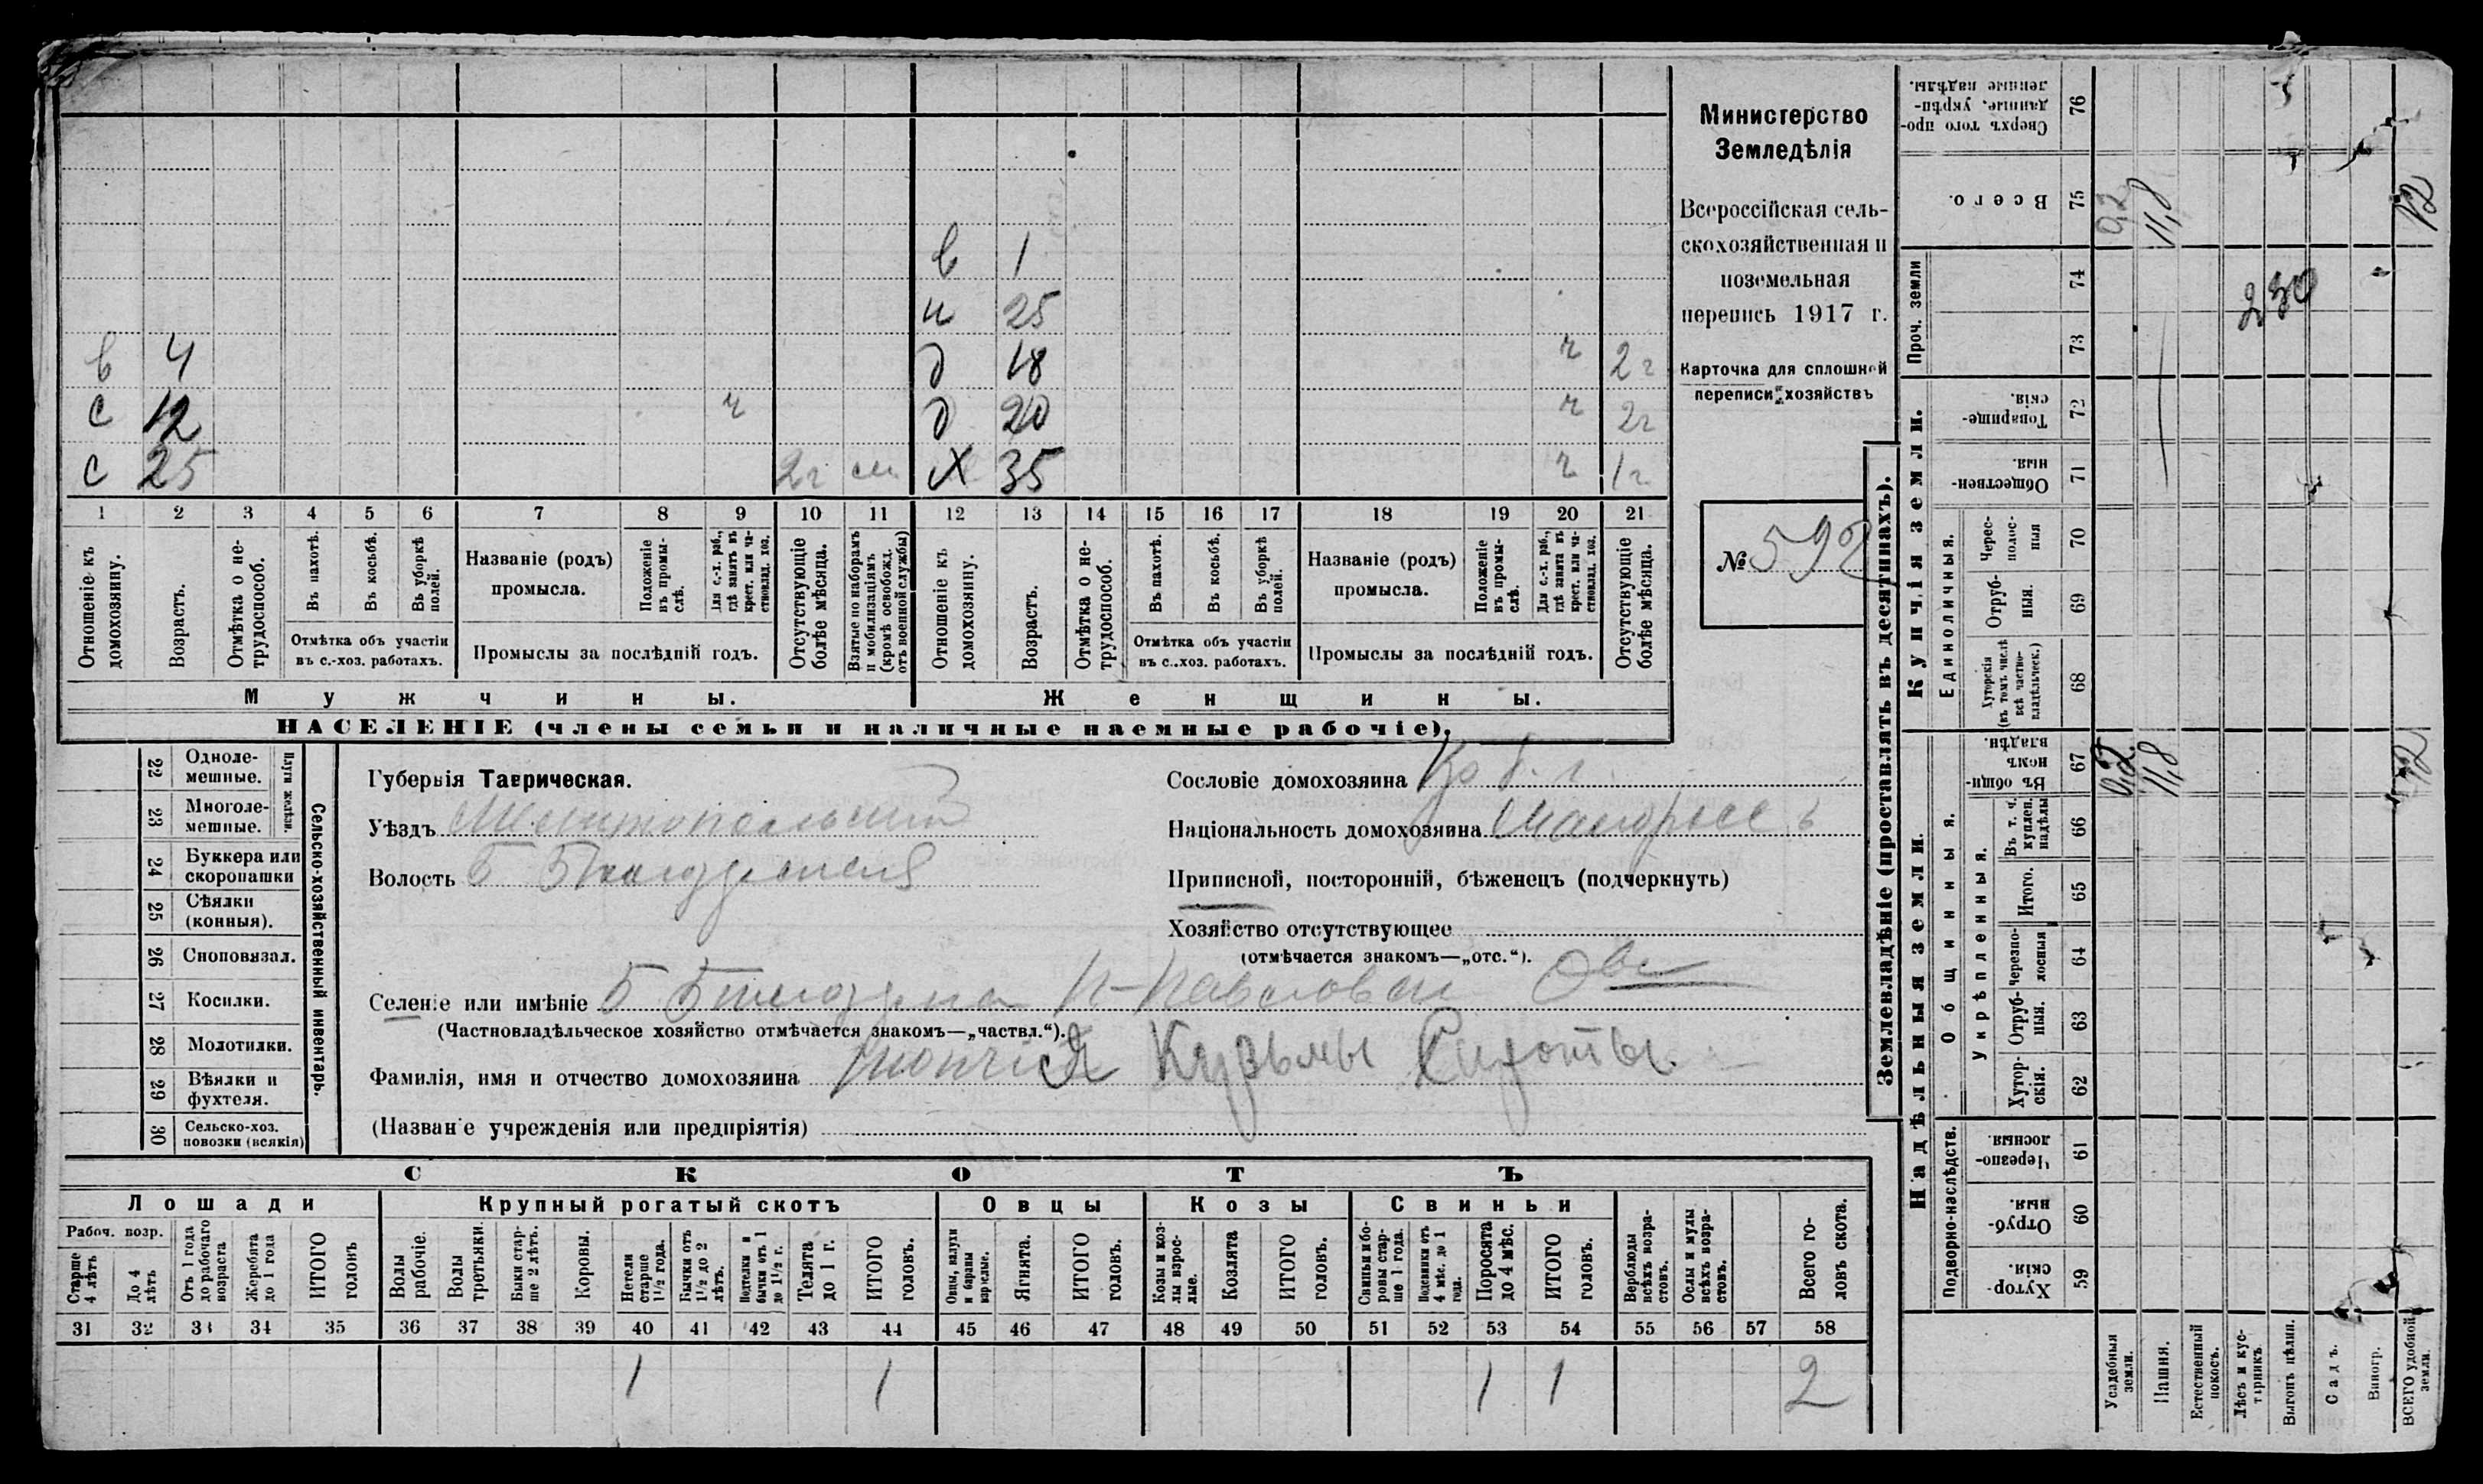 Министерство
Земледѣлія
Всероссійская сель-
скохозяйственная и
поземельная
перепись 1917 г.
Карточка для сплошной
переписи хозяйствъ
№ 592
в 1
н 25
в 4 д 18 ч 2 г
с 12 ч д 20 ч 2 г
с 25 2 г Х 35 ч 1 г
1 2 3 4 5 6 7 8 9 10 11 12 13 14 15 16 17 18 19 20 21
Отношеніе къ домохозяину.
Возрастъ.
Отмѣтка о не-трудоспособ.
Въ пахотѣ.
Въ косьбѣ.
Въ уборкѣ полей.
Отмѣтка объ участіи
въ с.-хоз. работахъ.
Названіе (родъ)
промысла.
Положеніе въ промы-слѣ.
Для с.-х. раб., гдѣ занятъ въ крест. или ча-стновлад. хоз.
Промыслы за послѣдній годъ.
Отсутствующіе болѣе мѣсяца.
Взятые по наборамъ и мобилизаціямъ (кромѣ освобожд. отъ военной службы)
Отношеніе къ домохозяину.
Возрастъ.
Отмѣтка о не-трудоспособ.
Въ пахотѣ.
Въ косьбѣ.
Въ уборкѣ полей.
Отмѣтка объ участіи
въ с..хоз. работахъ.
Названіе (родъ)
промысла.
Положеніе въ промы-слѣ.
Для с.-х. раб., гдѣ занята въ крест. или ча-стновлад. хоз.
Промыслы за послѣдній годъ.
Отсутствующіе болѣе мѣсяца.
Мужчины. Женщины.
НАСЕЛЕНІЕ (члены семьи и наличные наемные рабочіе).
Сельско-хозяйственный инвентарь.
Плуги желѣзн.
22 Одноле-мешные.
23 Многоле-мешные.
24 Буккера или скоропашки
25 Сѣялки (конныя).
26 Сноповязал.
27 Косилки.
28 Молотилки.
29 Вѣялки и фухтеля.
30 Сельско-хоз. повозки (всякія)
Губернія Таврическая.
Уѣздъ Мелитопольскій
Волость Б
Селеніе или имѣніе Б
(Частновладѣльческое хозяйство отмѣчается знакомъ—„частвл.“).
Фамилія, имя и отчество домохозяина Кузьмы Сироты.
(Названіе учрежденія или предпріятія)
Сословіе домохозяина
Національность домохозяина Малороссъ
Приписной, посторонній, бѣженецъ (подчеркнуть)
Хозяйство отсутствующее
(отмѣчается знакомъ—„отс.“).
СКОТЪ
Лошади Крупный рогатый скотъ Овцы Козы Свиньи
Рабоч. возр.
Старше 4 лѣтъ
До 4 лѣтъ
Отъ 1 года до рабочаго возраста
Жеребята до 1 года
ИТОГО головъ
Волы рабочіе.
Волы третьяки.
Быки стар-ше 2 лѣтъ.
Коровы.
Нетели старше 1½ года.
Бычки отъ 1½ до 2 лѣтъ.
Подтелки и бычки отъ 1 до 1½ г.
Телята до 1 г.
ИТОГО головъ.
Овцы, валухи и бараны взрослые.
Ягнята.
ИТОГО головъ.
Козы и коз-лы взрос-лые.
Козлята
ИТОГО головъ.
Свиньи и бо-ровы стар-ше 1 года.
Подсвинки отъ 4 мѣс. до 1 года.
Поросята до 4 мѣс.
ИТОГО головъ.
Верблюды всѣхъ возра-стовъ.
Ослы и мулы всѣхъ возра-стовъ.
Всего го-ловъ скота.
31 32 33 34 35 36 37 38 39 40 41 42 43 44 45 46 47 48 49 50 51 52 53 54 55 56 57 58
1 1 1 1 2
Землевладѣніе (проставлять въ десятинахъ).
Надѣльныя земли.
Купчія земли.
Проч. земли
Подворно-наслѣдств.
Общинныя.
Укрѣпленныя.
Единоличныя.
Сверхъ того про-данные, укрѣп-ленные надѣлы. 76
Всего. 75 0,2 11,8 12
74
73
230
Товарище-скія. 72
Обществен-ныя. 71
Черес-полос-ныя 70
Отруб-ныя. 69
Хуторскія (въ томъ числѣ всѣ частно-владѣльческ.) 68
Въ общин-номъ владѣн. 67 0,2 11,8 12
Въ т. ч. куплен. надѣлы 66
Итого. 65
Черезпо-лосныя 64
Отруб-ныя. 63
Хутор-скія. 62
Черезпо-лосныя 61
Отруб-ныя. 60
Хутор-скія 59
Усадебныя земли.
Пашня.
Естественный покосъ.
Лѣсъ и кус-тарникъ.
Выгонъ цѣлин.
Садъ.
Виногр.
ВСЕГО удобной земли.